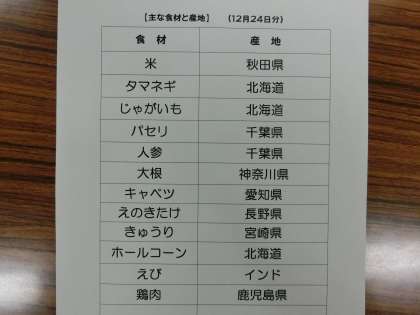 【主な食材と産地】 (12月24日分)
食材 産地
米 秋田県
タマネギ 北海道
じゃがいも 北海道
パセリ 千葉県
人参 千葉県
大根 神奈川県
キャベツ 愛知県
えのきたけ 長野県
きゅうり 宮崎県
ホールコーン 北海道
えび インド
鶏肉 鹿児島県